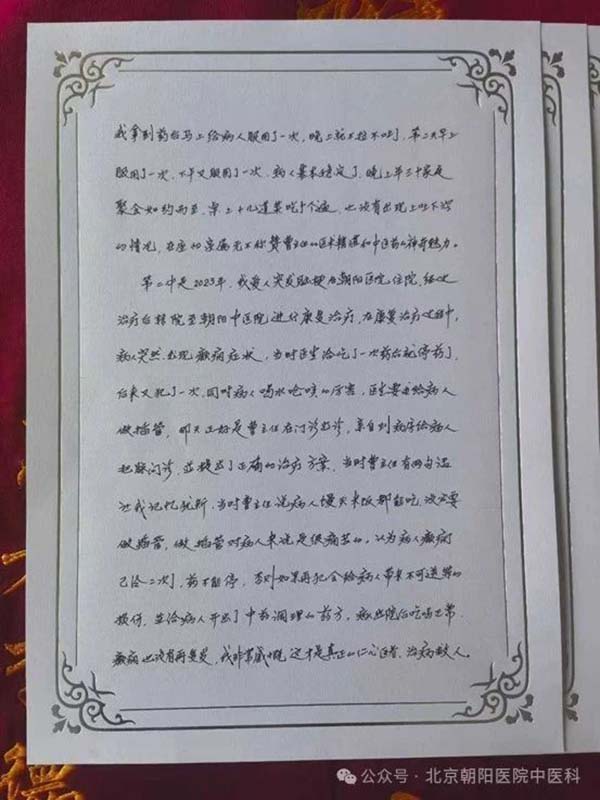 我拿到药后马上给病人服用了一次，晚上就不拉不吐，第二天早上
服用了一次，下午又服用了一次，病人基本稳定了，晚上年三十家庭
聚会如约而至，桌上十几道菜吃个遍，也没有出现上吐下泻
的情况，在座的亲属无不称赞曹主任的医术精湛和中医药的神奇魅力。
第二件是2023年，我爱人突发脑梗在朝阳医院住院，经过
治疗后转院至朝阳中医院进行康复治疗，在康复治疗过程中，
病人突然出现癫痫症状，当时医生给吃了一次药后就停药了，
后来又犯了一次，同时病人喝水呛咳的厉害，医生要求给病人
做插管，那天正好是曹主任在门诊出诊，亲自到病房给病人
把脉问诊，并提出了正确的治疗方案，当时曹主任有两句话
让我记忆犹新，当时曹主任说病人馒头米饭都能吃，没必要
做插管，做插管对病人来说是很痛苦的，认为病人癫痫
已经二次，药不能停，否则如果再犯会给病人带来不可逆转的
损伤，并给病人开出了中药调理的药方，病人出院后吃喝正常，
癫痫也没有再复发，我非常感慨，这才是真正的仁心医者，治病救人。
公众号·北京朝阳医院中医科